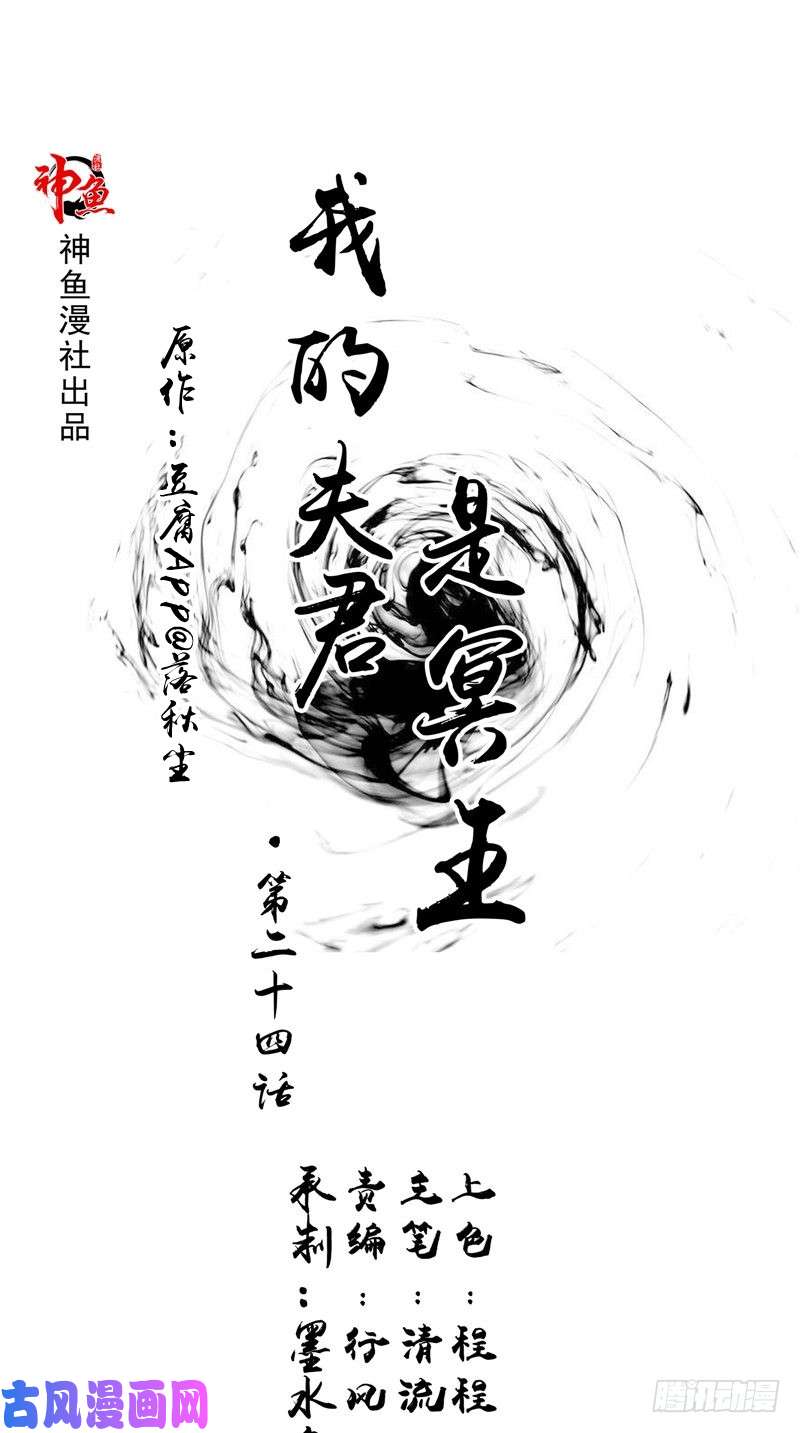 神鱼
漫社
神鱼漫社出品
原作：豆腐App@落秋尘
我的夫君
是冥王
·第二十四话
承制：墨水
责编：行风
主笔：清流
上色：程程
古风漫画网
腾讯动漫